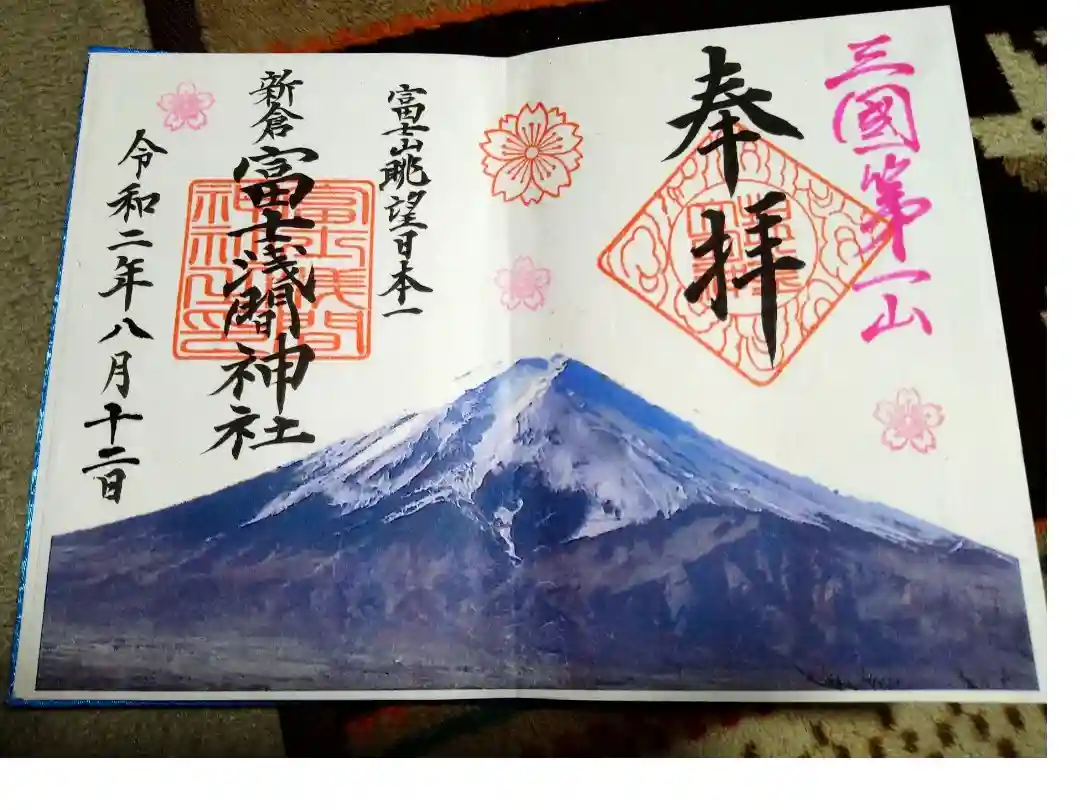 三國第一山
奉拝
富士山眺望日本一
新倉富士浅間神社
令和二年八月十二日
富士浅間
神社之印